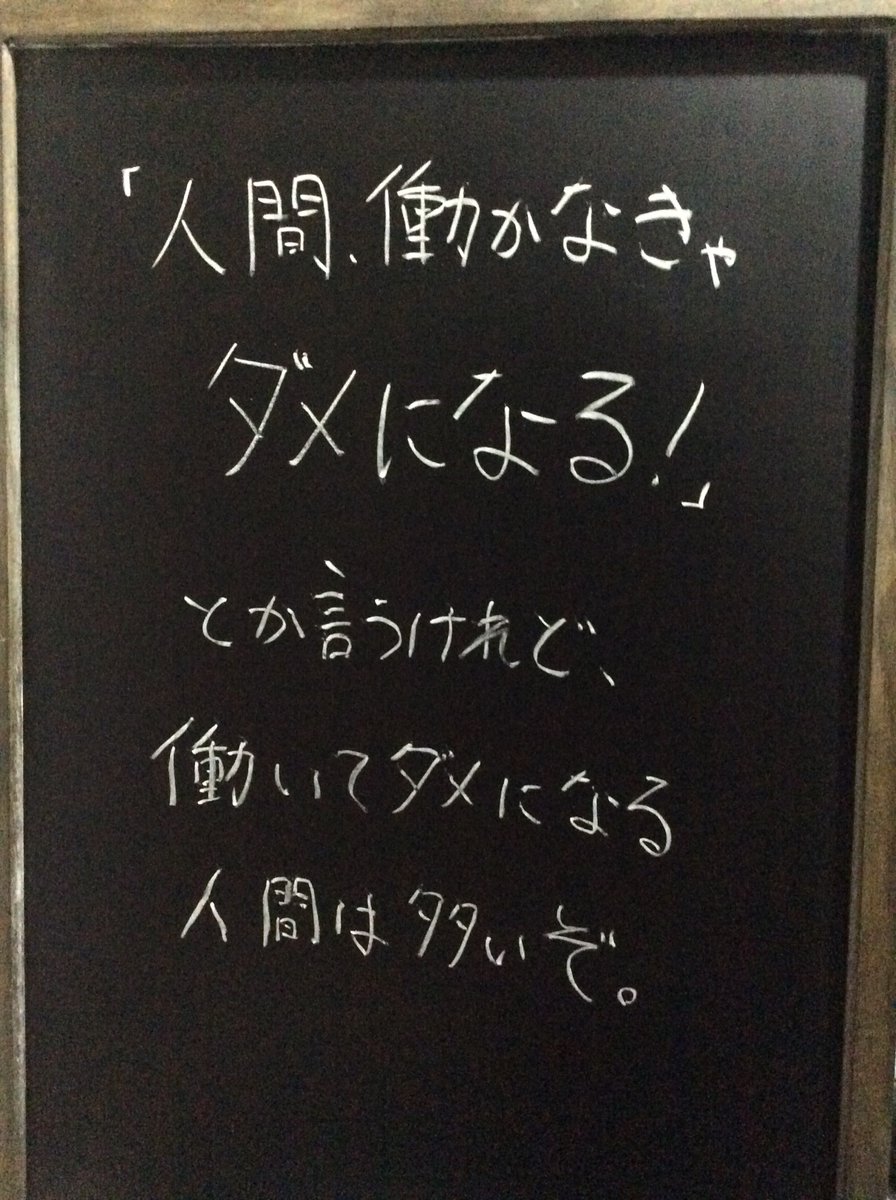 「人間、働かなきゃ
ダメになる!」
とか言うけれど、
働いてダメになる
人間は多いぞ。